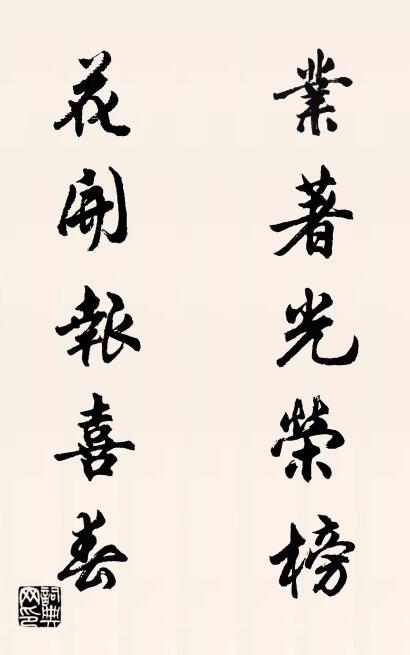 業著光榮榜
花開報喜春
詞典網印